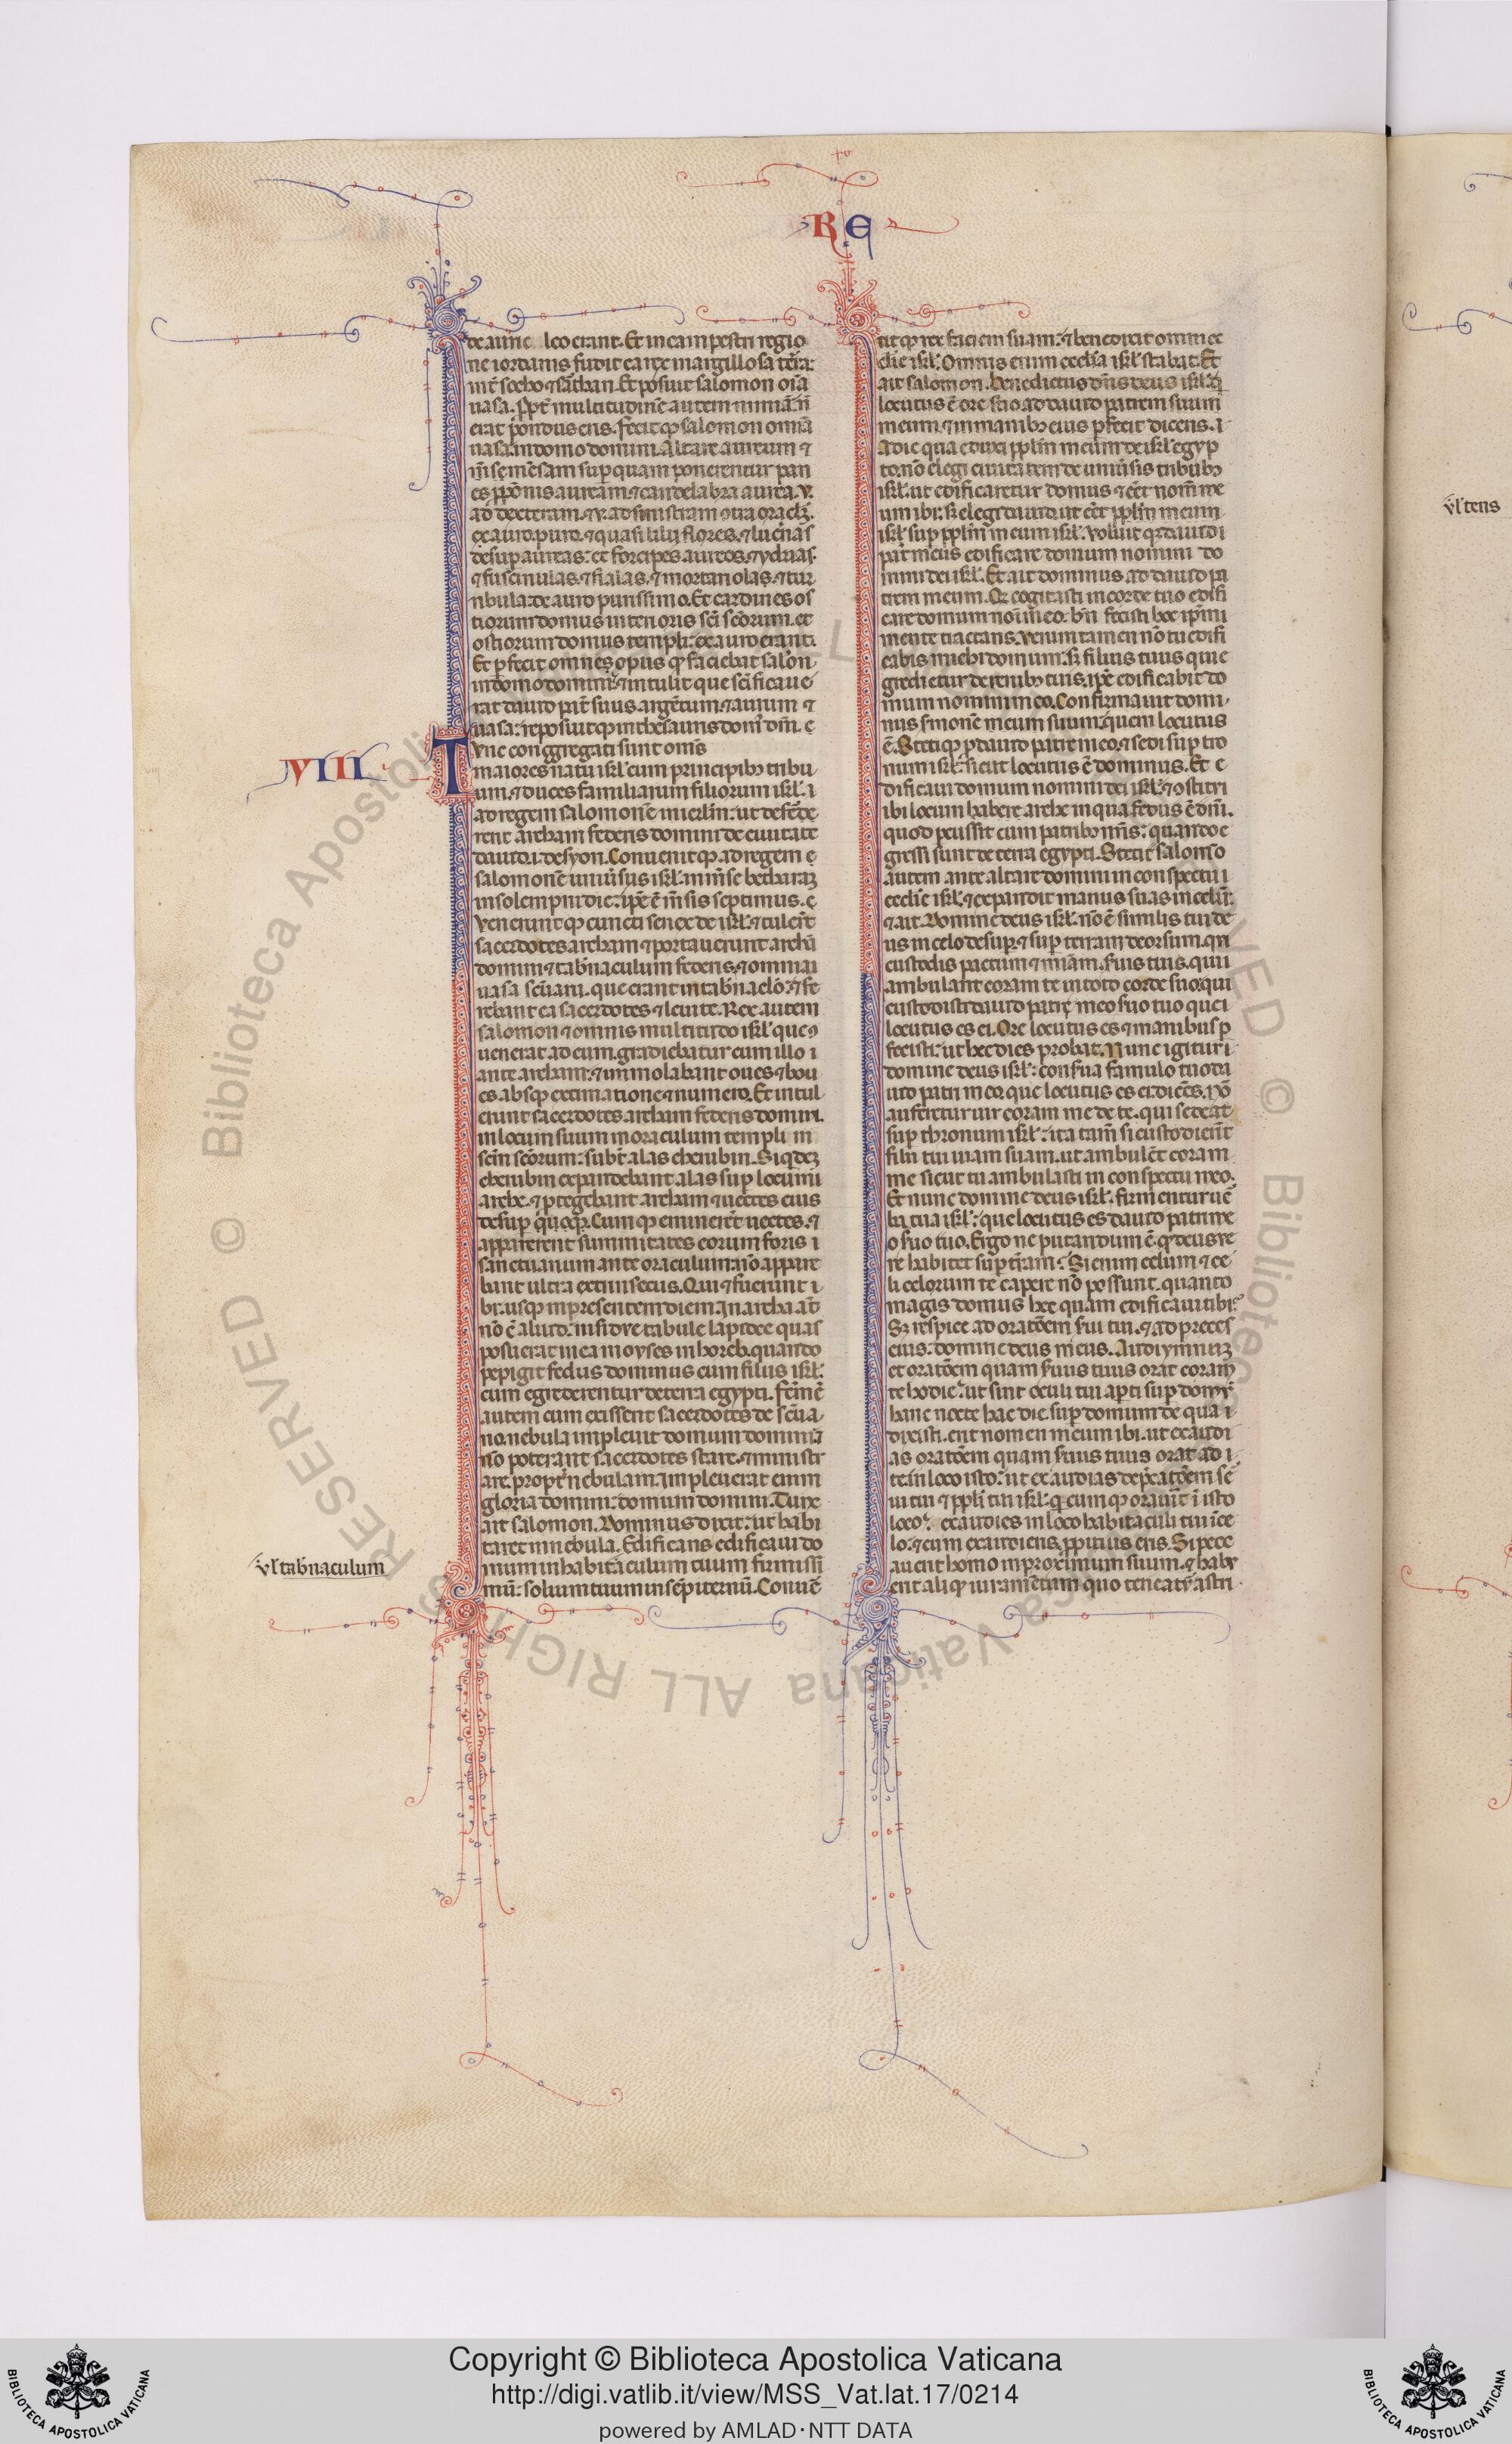 RE
de auric leo erant. Et in campestri regio
ne iordanis fudit ea rex in argillosa terͣa:
int̄ socbo ⁊ sar̄than. Et posuit salomon oīa
uasa. ꝓpt̄ multitudinē autem nimiā: n̄
erat pondus eris. fecit qꝫ salomon omīa
uasa in domo domini. Altare aureum ⁊
mēsam sup quam ponerentur pan
es ꝓpōnis auream. ⁊ candelabra aurea. v.
ad dexteram. ⁊ v. ad sinistram
ex auro puro. ⁊ quasi lilij flores. ⁊ lucernas
desup aureas: et forcipes aureos. ⁊ ydrias.
⁊ fuscinulas. ⁊ fialas. ⁊ mortariolas. ⁊ tur
ribula: de auro purissimo. Et cardines os
tiorum domus interioris sc̄i sc̄orum. et
ostiorum domus templi: ex auro erant.
Et ꝑfecit omnes opus qꝫ faciebat salōn
in domo domini. ⁊ intulit que sc̄ificaue
rat dauid pat̄ suus argētum. ⁊ aurum ⁊
uasa: reposuit qꝫ in thesauris domī dn̄i.
VIII
Tunc conggregati sunt om̄s
maiores natu isrl̄ cum principibꝫ tribu
um. ⁊ duces familiarum filiorum isrl̄.
ad regem salomonē in ierl̄m: ut defēde
rent archam federis domini de ciuitate
dauid. i. de syon. Conuenit qꝫ ad regem
salomonē uniūsus isrl̄ in mn̄se
in solempni die: ip̄e ē mn̄sis septimus.
Venerunt qꝫ cuncti senex de isrl̄. ⁊ tuler̄t
sacerdotes archam ⁊ portauerunt archā
domini ⁊ tab̄naculum federis. ⁊ omnia
uasa sc̄uarii. que erant in tab̄naclō: ⁊ fe
rebant ea sacerdotes ⁊ leuite. Rex autem
salomon ⁊ omnis multitudo isrl̄ que ꝯ
uenerat ad eum. gradiebatur cum illo
ante archam: ⁊ immolabant oues ⁊ bou
es absqꝫ extimatione ⁊ numero. Et intul
erunt sacerdotes archam federis domini.
in locum suum in oraculum templi in
sc̄m sc̄orum: subt̄ alas cherubin. Siqͥdeꝫ
cherubin expandebant alas sup locum
arche. ⁊ ꝓtegebant archam ⁊ uectes eius
desup. Cum qꝫ eminerēt uectes. ⁊
apparerent summitates eorum foris
sanctuarium ante oraculum: nō appare
bant ultra extrinsecus. Qui ⁊ fuerunt i
bi: usqꝫ in presentem diem. In archa aūt
nō ē aliud: nisi due tabule lapidee quas
posuerat in ea moyses in horeb. quando
pepigit fedus dominus cum filiis isrl̄:
cum egrederentur de terra egypti. fctm̄ ē
autem cum exissent sacerdotes de sc̄ua
rio. nebula impleuit domum domini
nō poterant sacerdotes stare. ⁊ ministr
are. propt̄ nebulam. Impleuerat enim
gloria domini: domum domini. Tunc
ait salomon. Dominus dixit: ut habi
taret in nebula. Edificans edificaui do
mum in habitaculum tuum firmissi
mū: solium tuum in sēpiternū. Conuē
vl̄ tab̄naculum
tit qꝫ rex faciem suam: ⁊ benedixit omni ec
clie isrl̄. Omnis enim ecclīa isrl̄ stabat. Et
ait salomon. Benedictus dn̄s deus isrl̄: qͥ
locutus ē ore suo ad dauid patrem suum
meum. ⁊ in manibꝫ eius ꝑfecit dicens.
A die qua eduxi pplm̄ meum de isrl̄ egyp
to. nō elegi ciuitatem de uniūsis tribubꝫ
isrl̄. ut edificaretur domus ⁊ eēt nom̄ me
um ibi: sꝫ elegi dauid. ut eēt pplm̄ meum
isrl̄ sup pplm̄ meum isrl̄. Voluit qꝫ dauid
pat̄ meus edificare domum nomini do
mini dei isrl̄. Et ait dominus ad dauid pa
trem meum. Qꝫ cogitasti in corde tuo edifi
care domum nom̄i meo: bn̄ fecisti hec ip̄m
mente tractans. Verum tamen nō tu edifi
cabis michi domum: sꝫ filius tuus qui e
gredietur de renibꝫ tuis. ip̄e edificabit do
mum nomini meo. Confirmauit domi
nus smonē meum suum: quem locutus
ē. Steti qꝫ ꝓ dauid patre meo. ⁊ sedi sup tro
num isrl̄: sicut locutus ē dominus. Et e
dificaui domum nomini dei isrl̄. ⁊ ostitui
ibi locum habere arche in qua fedus ē dn̄i.
quod percussit cum patribꝫ nr̄is: quando e
gressi sunt de terra egypti. Stetit salomō
autem ante altare domini in conspectu
ecclīe isrl̄. ⁊ expandit manus suas in celū:
⁊ ait. Domine deus isrl̄. nō ē similis tui de
us in celo desup. ⁊ sup terram deorsum. qui
custodis pactum ⁊ mīam. suis tuis. qui
ambulant coram te in toto corde suo: qui
custodisti dauid patre meo suo tuo que
locutus es ei. Ore locutus es ⁊ manibus ꝑ
fecisti: ut hec dies probat. Nunc igitur
domine deus isrl̄: conserua famulo tuo da
uid patri meo. que locutus es ei dicēs. Nō
auferetur uir coram me de te. qui sedeat
sup thronum isrl̄: ita tam̄ si custodierīt
filii tui uiam suam. ut ambulēt coram
me sicut tu ambulasti in conspectu meo.
Et nunc domine deus isrl̄. firmentur uē
ba tua isrl̄: que locutus es dauid patri me
o suo tuo. Ergo ne putandum ē qꝫ deus ue
re habitet sup trām? Si enim celum ⁊ ce
li celorum te capere nō possunt. quanto
magis domus hec quam edificaui tibi?
Sꝫ respice ad oratōem sui tui. ⁊ ad preces
eius: domine deus meus. Audi ymnuꝫ
et oratōem quam suus tuus orat coram
te hodie. ut sint oculi tui apti sup domū
hanc nocte hac die. sup domum de qua
dixisti. erit nomen meum ibi. ut exaudi
as oratōem quam suus tuus orat ad
te in loco isto: ut exaudias dep̄catōem sē
ui tui ⁊ ppli tui isrl̄. qꝫcumqꝫ orauīt ī isto
loco. exaudies in loco habitaculi tui ī ce
lo: ⁊ cum exaudiens. ꝓpitius eris. Si pecc
auerit homo in proximum suum. ⁊ habu
erit aliqꝫ iuramētum quo teneat᷑ astri
vl̄ tens
Copyright © Biblioteca Apostolica Vaticana
http://digi.vatlib.it/view/MSS_Vat.lat.17/0214
powered by AMLAD·NTT DATA
BIBLIOTECA APOSTOLICA VATICANA
BIBLIOTECA APOSTOLICA VATICANA
© Biblioteca Apostolica Vaticana ALL RIGHTS RESERVED